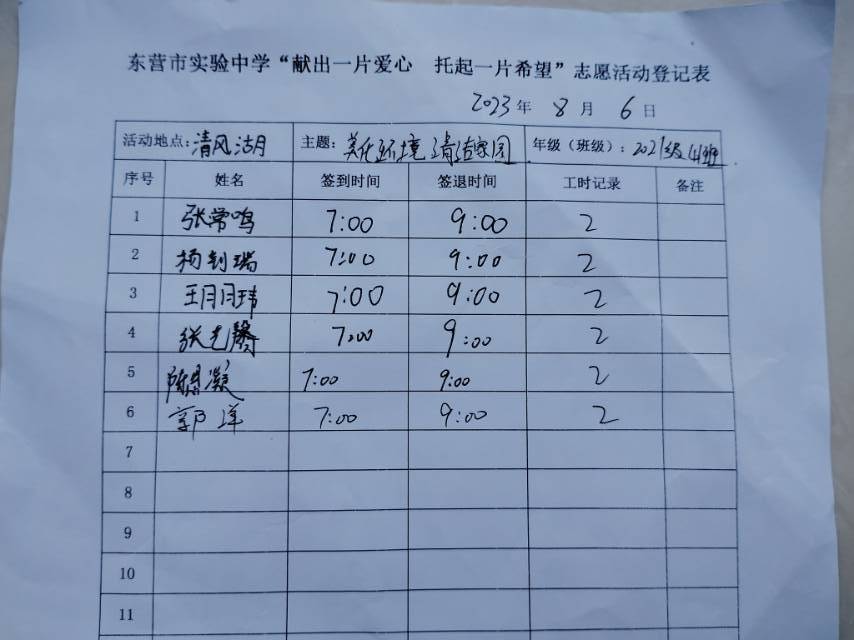 东营市实验中学“献出一片爱心 托起一片希望”志愿活动登记表
2023年 8月 6日
活动地点:清风湖 主题:美化环境 清洁家园 年级(班级):2021级41班
序号 姓名 签到时间 签退时间 工时记录 备注
1 张常鸣 7:00 9:00 2
2 杨钊瑞 7:00 9:00 2
3 王月月玮 7:00 9:00 2
4 张艺馨 7:00 9:00 2
5 陈思凝 7:00 9:00 2
6 郭洋 7:00 9:00 2
7
8
9
10
11